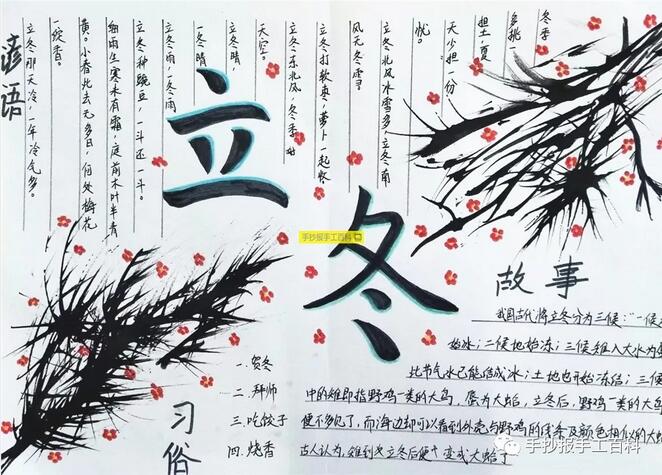 冬季
多挑一
担土，夏
天少担一份
忧。
立冬北风冰雪多，立冬南
风无冬雪。
立冬打软枣，萝卜一起收
立冬东北风，冬季好
天空。
立冬晴，
一冬晴
立冬雨，一冬雨
立冬种豌豆，一斗还一斗。
细雨生寒未有霜，庭前木叶半青
黄。小春此去无多日，何处梅花
一绽香。
立冬那天冷，一年冷气多。
谚语
立冬
手抄报手工百科
故事
我国古代将立冬分为三候："一候
始冰；二候地始冻；三候雉入大水为
此节气水已能结成冰；土地也开始冻结；三候
中的雉即指野鸡一类的大鸟，蜃为大蛤，立冬后，野鸡一类的大鸟
便不多见了，而海边却可以看到外壳与野鸡的线条及颜色相似的大蛤
古人认为，雉到立冬后便变成大蛤了
习俗
一.贺冬
二.拜师
三.吃饺子
四.烧香
手抄报手工百科